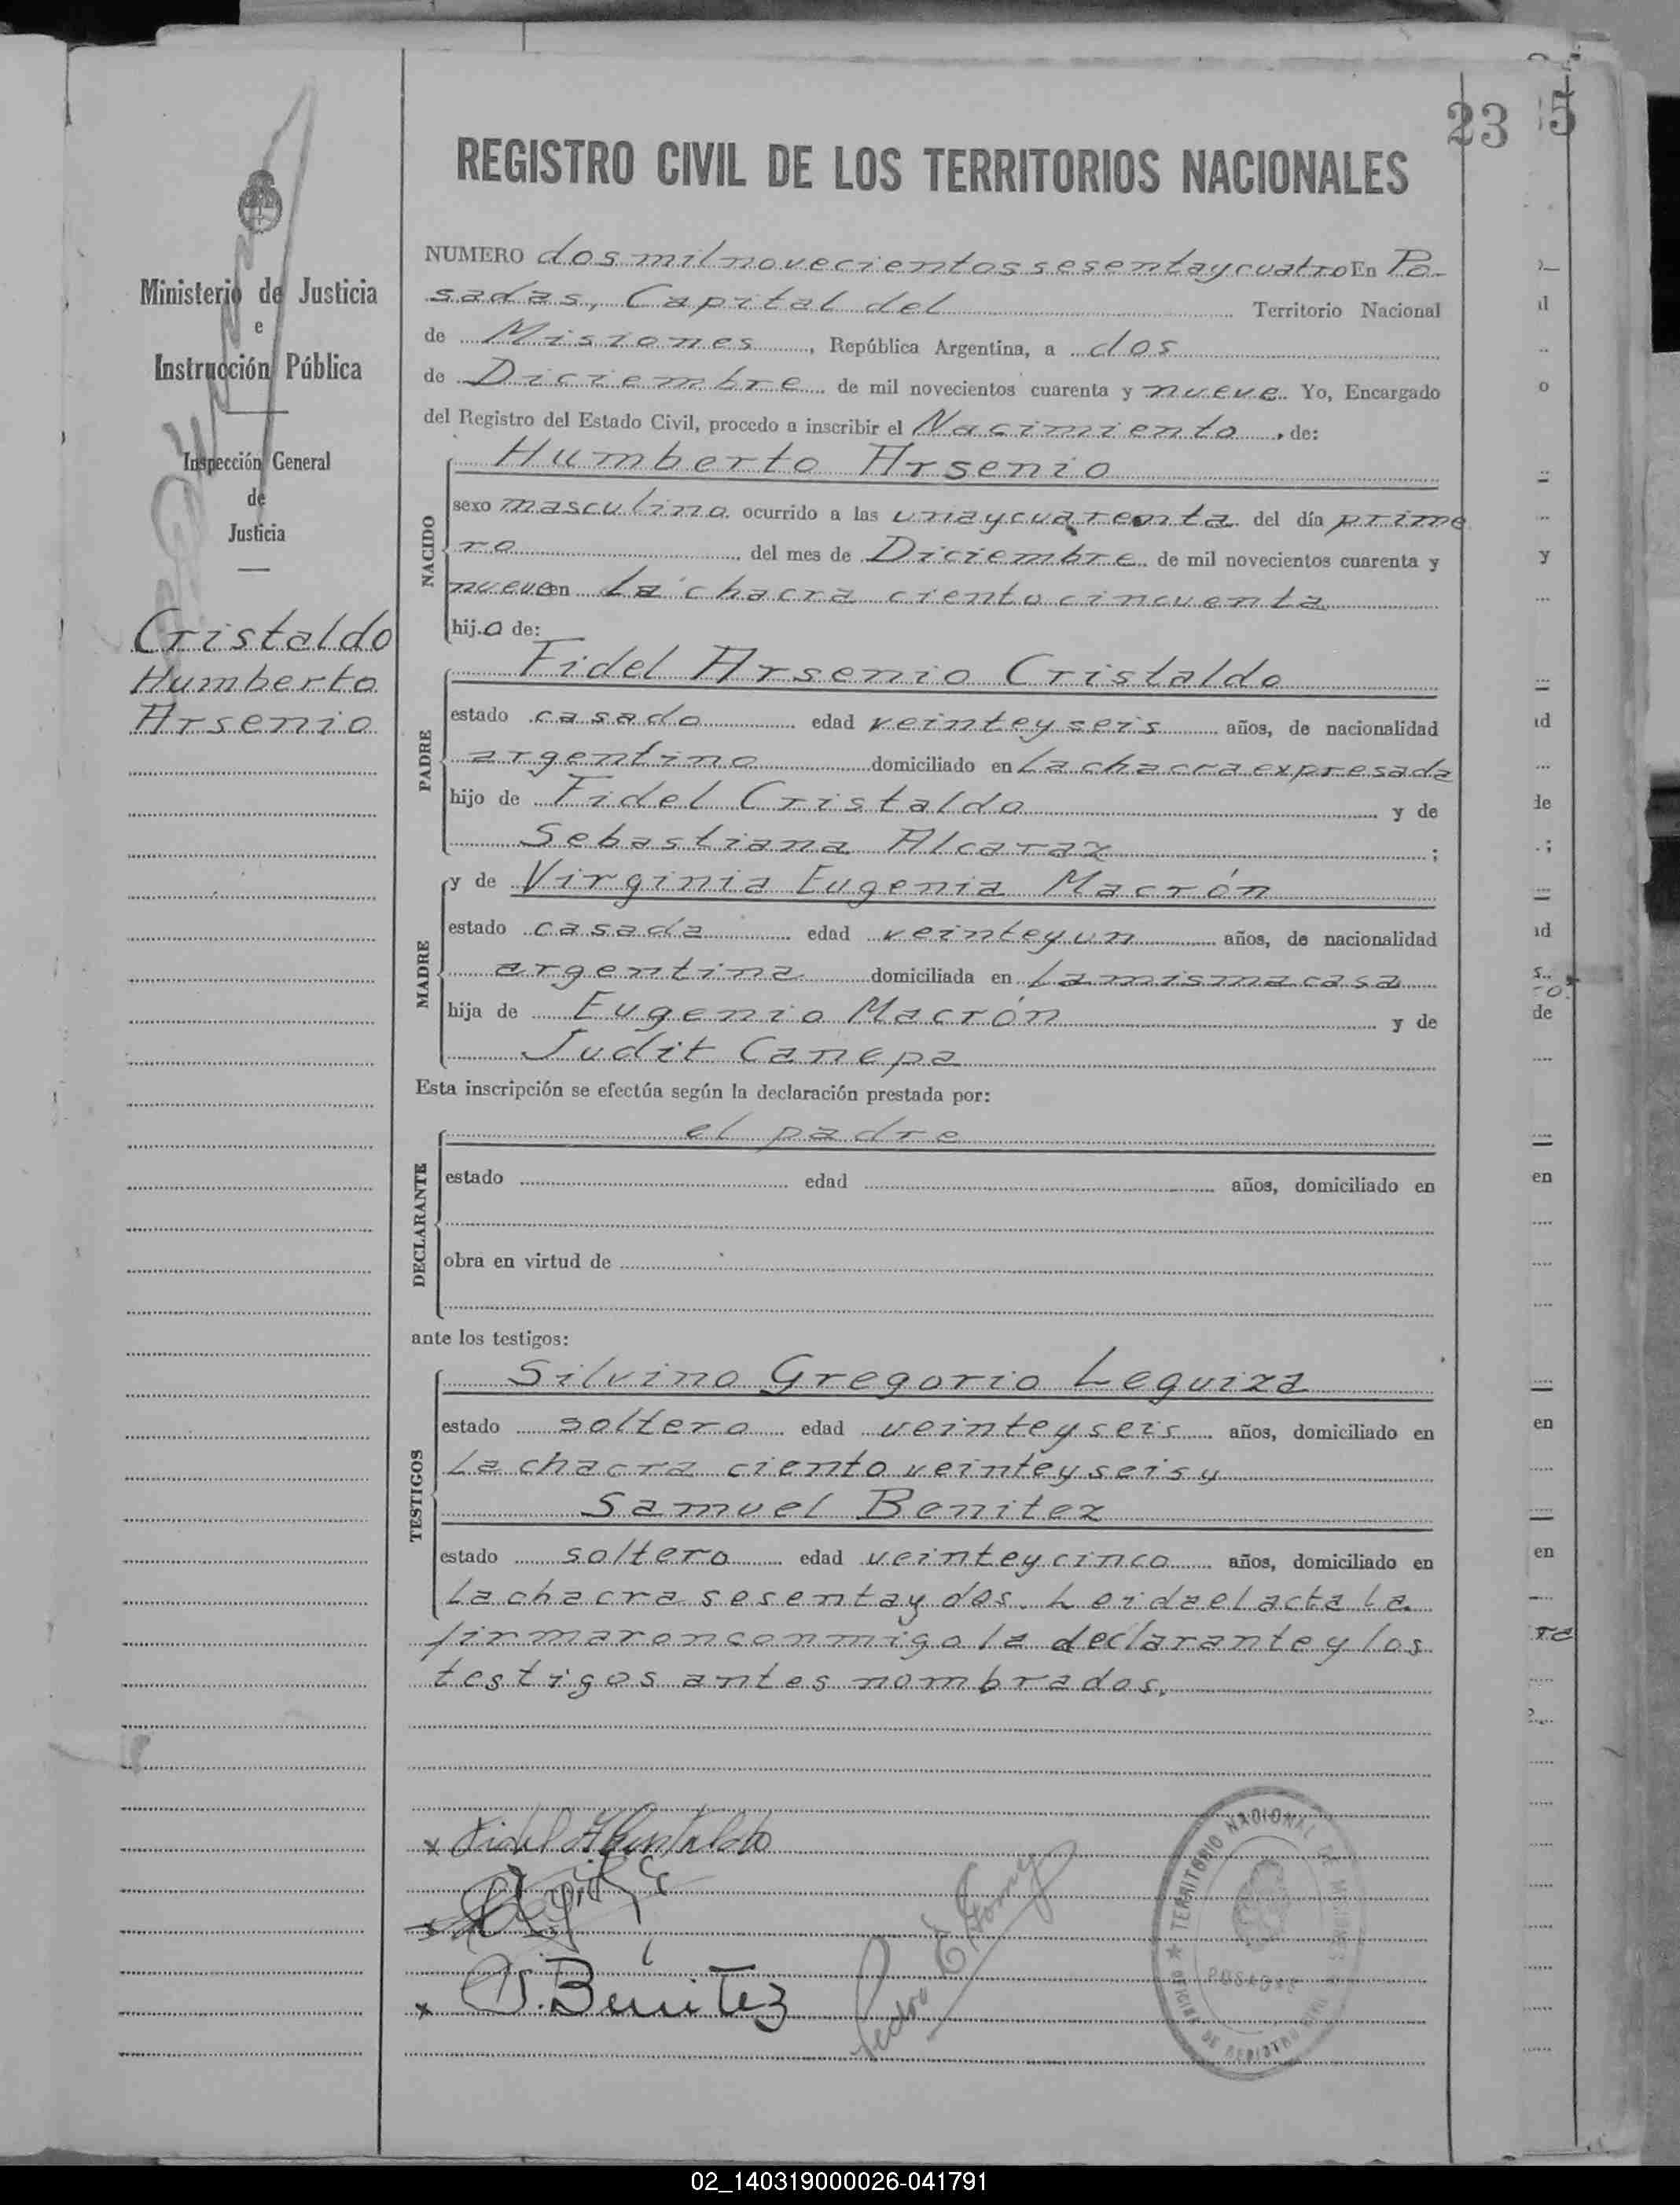 23
5
REGISTRO CIVIL DE LOS TERRITORIOS NACIONALES
Ministerio de Justicia
e
Instrucción Pública
Inspección General
de
Justicia
Cristaldo
Humberto
Arsenio
NUMERO dos mil novecientos sesenta y cuatro En Po-
sadas, Capital del Territorio Nacional
de Misiones, República Argentina, a dos
de Diciembre de mil novecientos cuarenta y nueve Yo, Encargado
del Registro del Estado Civil, procedo a inscribir el Nacimiento, de:
Humberto Arsenio
NACIDO
sexo masculino ocurrido a las una y cuarenta del día prime
ro del mes de Diciembre de mil novecientos cuarenta y
nueve en La chacra ciento cincuenta
hijo de:
Fidel Arsenio Cristaldo
PADRE
estado casado edad veinte y seis años, de nacionalidad
argentino domiciliado en La chacra expresada
hijo de Fidel Cristaldo y de
Sebastiana Alcaraz ;
y de Virginia Eugenia Macrón
MADRE
estado casada edad veinte y un años, de nacionalidad
argentina domiciliada en La misma casa
hija de Eugenio Macrón y de
Judit Canepa
Esta inscripción se efectúa según la declaración prestada por:
el padre
DECLARANTE
estado edad años, domiciliado en
obra en virtud de
ante los testigos:
Silvino Gregorio Leguiza
TESTIGOS
estado soltero edad veinte y seis años, domiciliado en
La chacra ciento veinte y seis y
Samuel Benitez
estado soltero edad veinte y cinco años, domiciliado en
La chacra sesenta y dos. Leida el acta la
firmaron conmigo la declarante y los
testigos antes nombrados.
x Fidel A Cristaldo
x
x S. Benitez
Pedro E Gomez
TERRITORIO NACIONAL DE MISIONES
POSADAS
OFICINA DE REGISTRO CIVIL
02_140319000026-041791